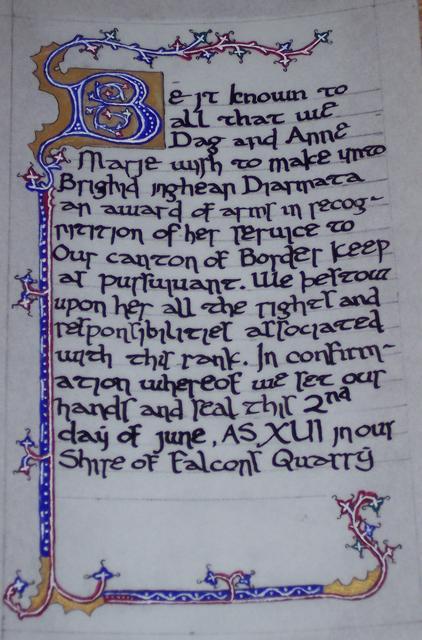 Be it known to
all that we
Dag and Anne
Marie wish to make unto
Brighid inghean Diarmata
an award of arms in recog-
nitition of her service to
Our canton of Border Keep
as pursuivant. We bestow
upon her all the rights and
responsibilities associated
with this rank. In confirm-
ation whereof we set our
hands and seal this 2nd
day of june, AS XLII in our
Shire of Falcons Quarry